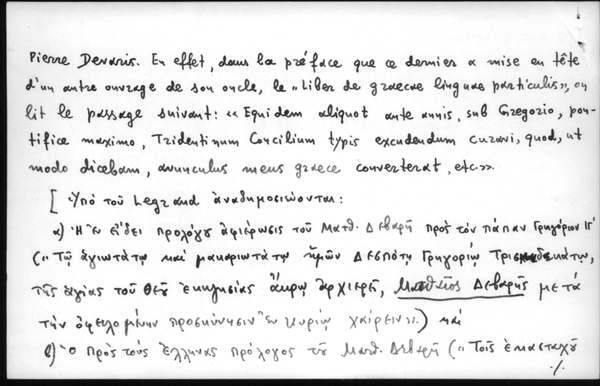 Pierre Devaris. En effet, dans la préface que ce dernier a mise en tête
d'un autre ouvrage de son oncle, le «Liber de graecae linguae particulis», on
lit le passage suivant: «Equidem aliquot ante annis, sub Gregorio, pon-
tifice maximo, Tridentinum Concilium typis excudendum curavi, quod, ut
modo dicebam, avunculus meus graece converterat, etc».
[Ὑπὸ τοῦ Legrand ἀναδημοσιώνονται:
α) Ἡ ἐν εἴδει προλόγου ἀφιέρωσις τοῦ Ματθ. Δεβαρῆ πρὸς τὸν πάπαν Γρηγόριον ΙΓ'
(«Τῷ ἁγιωτάτῳ καὶ μακαριωτάτῳ ἡμῶν Δεσπότῃ Γρηγορίῳ Τρισκαιδεκάτῳ,
τῆς ἁγίας τοῦ Θεοῦ ἐκκλησίας ἄκρῳ ἀρχιερεῖ, Ματθαῖος Δεβαρῆς μετὰ
τὴν ὀφειλομένην προσκύνησιν ἐν Κυρίῳ χαίρειν».) καὶ
β) Ὁ πρὸς τοὺς Ἕλληνας πρόλογος τοῦ Ματθ. Δεβαρῆ («Τοῖς ἑκασταχοῦ
./.